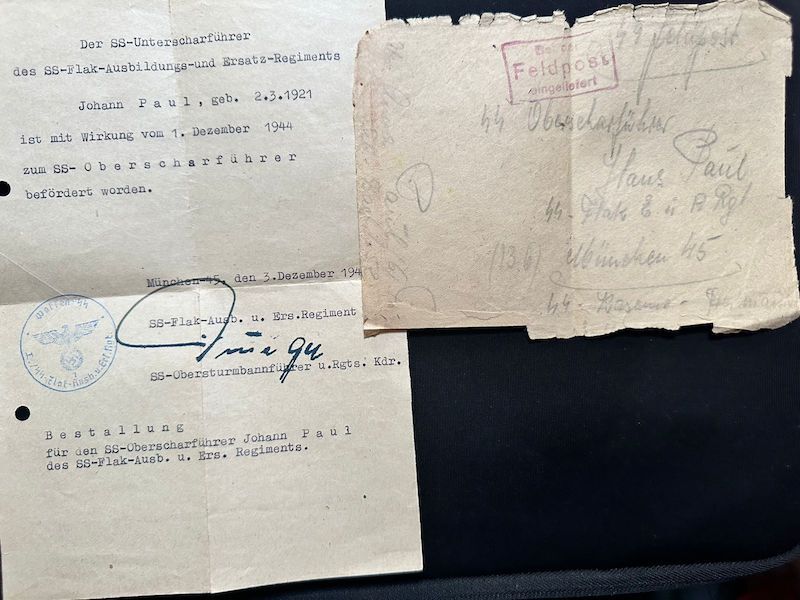 Der SS-Unterscharführer
des SS-Flak-Ausbildungs-und Ersatz-Regiments
Johann P a u l , geb. 2.3.1921
ist mit Wirkung vom 1. Dezember 1944
zum SS- O b e r s c h a r f ü h r e r
befördert worden.
München-45, den 3.Dezember 194
SS-Flak-Ausb. u. Ers.Regiment
SS-Obersturmbannführer u.Rgts. Kdr.
Waffen-SS
B e s t a l l u n g
für den SS-Oberscharführer Johann P a u l
des SS-Flak-Ausb. u. Ers. Regiments.
Feldpost
Bei der
Feldpost
eingeliefert
SS Oberscharführer
Hans Paul
SS-Flak E u A Rgt
(13b) München 45
SS-